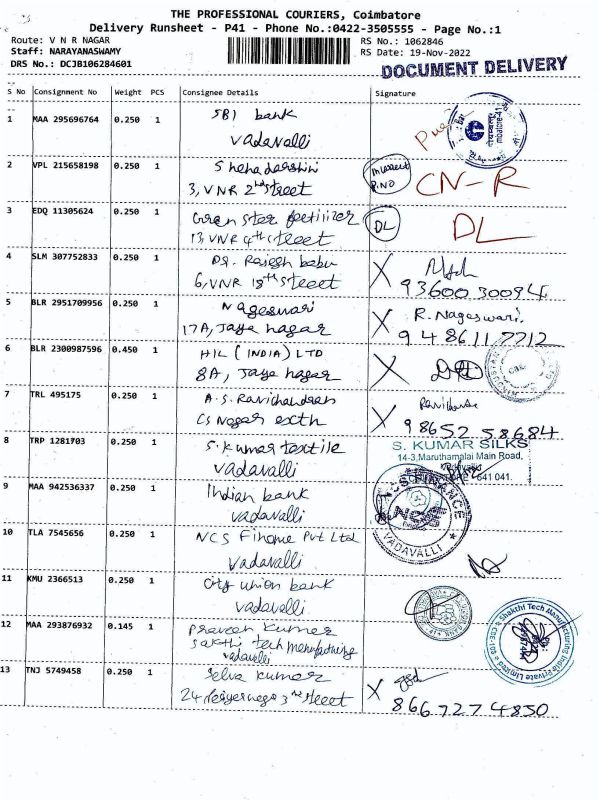 THE PROFESSIONAL COURIERS, Coimbatore
Delivery Runsheet - P41 - Phone No.:0422-3505555 - Page No.:1
Route: V N R NAGAR
RS No.: 1062846
Staff: NARAYANASWAMY
RS Date: 19-Nov-2022
DRS No.: DCJB106284601
DOCUMENT DELIVERY
S No Consignment No Weight PCS Consignee Details Signature
1 MAA 295696764 0.250 1 SBI bank
Vadavalli
2 VPL 215658198 0.250 1
3, VNR 2nd street
CN-R
3 EDQ 11305624 0.250 1 Green Star fertilizer
13, VNR 4th street
DL DL
4 SLM 307752833 0.250 1 Dr. Rajesh babu
6, VNR 18th street
X 93600 30094
5 BLR 2951709956 0.250 1 Nageswari
17A, Jaya nagar
X R. Nageswari.
9486117712
6 BLR 2300987596 0.450 1 HIL (INDIA) LTD
8A, Jaya nagar
X
7 TRL 495175 0.250 1 A.S. Ravichandran
CS Nagar extn
X 98652 58684
8 TRP 1281703 0.250 1 S. Kumar textile
Vadavalli
S. KUMAR SILKS
14-3, Maruthamalai Main Road,
Vadavalli
641 041.
9 MAA 942536337 0.250 1 Indian bank
Vadavalli
NCS FINANCE
NCS
VADAVALLI
10 TLA 7545656 0.250 1 NCS Finance Pvt Ltd
Vadavalli
11 KMU 2366513 0.250 1 City union bank
Vadavalli
12 MAA 293876932 0.145 1 Praveen Kumar
Sakthi tech manufacturing
Vadavalli
Shakthi Tech Manufacturing India Private Limited
13 TNJ 5749458 0.250 1 Selva Kumar
3rd street
X 8667274850